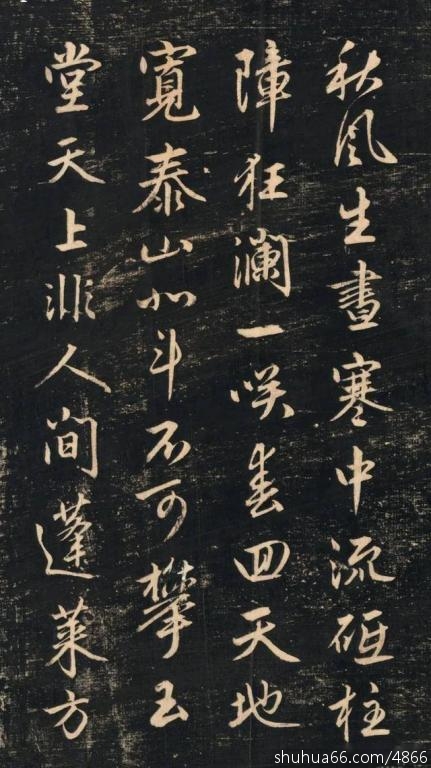 秋風生晝寒中流砥柱
障狂瀾一咲春回天地
寬泰山北斗不可攀玉
堂天上非人間蓬萊方
shuhua66.com/4866